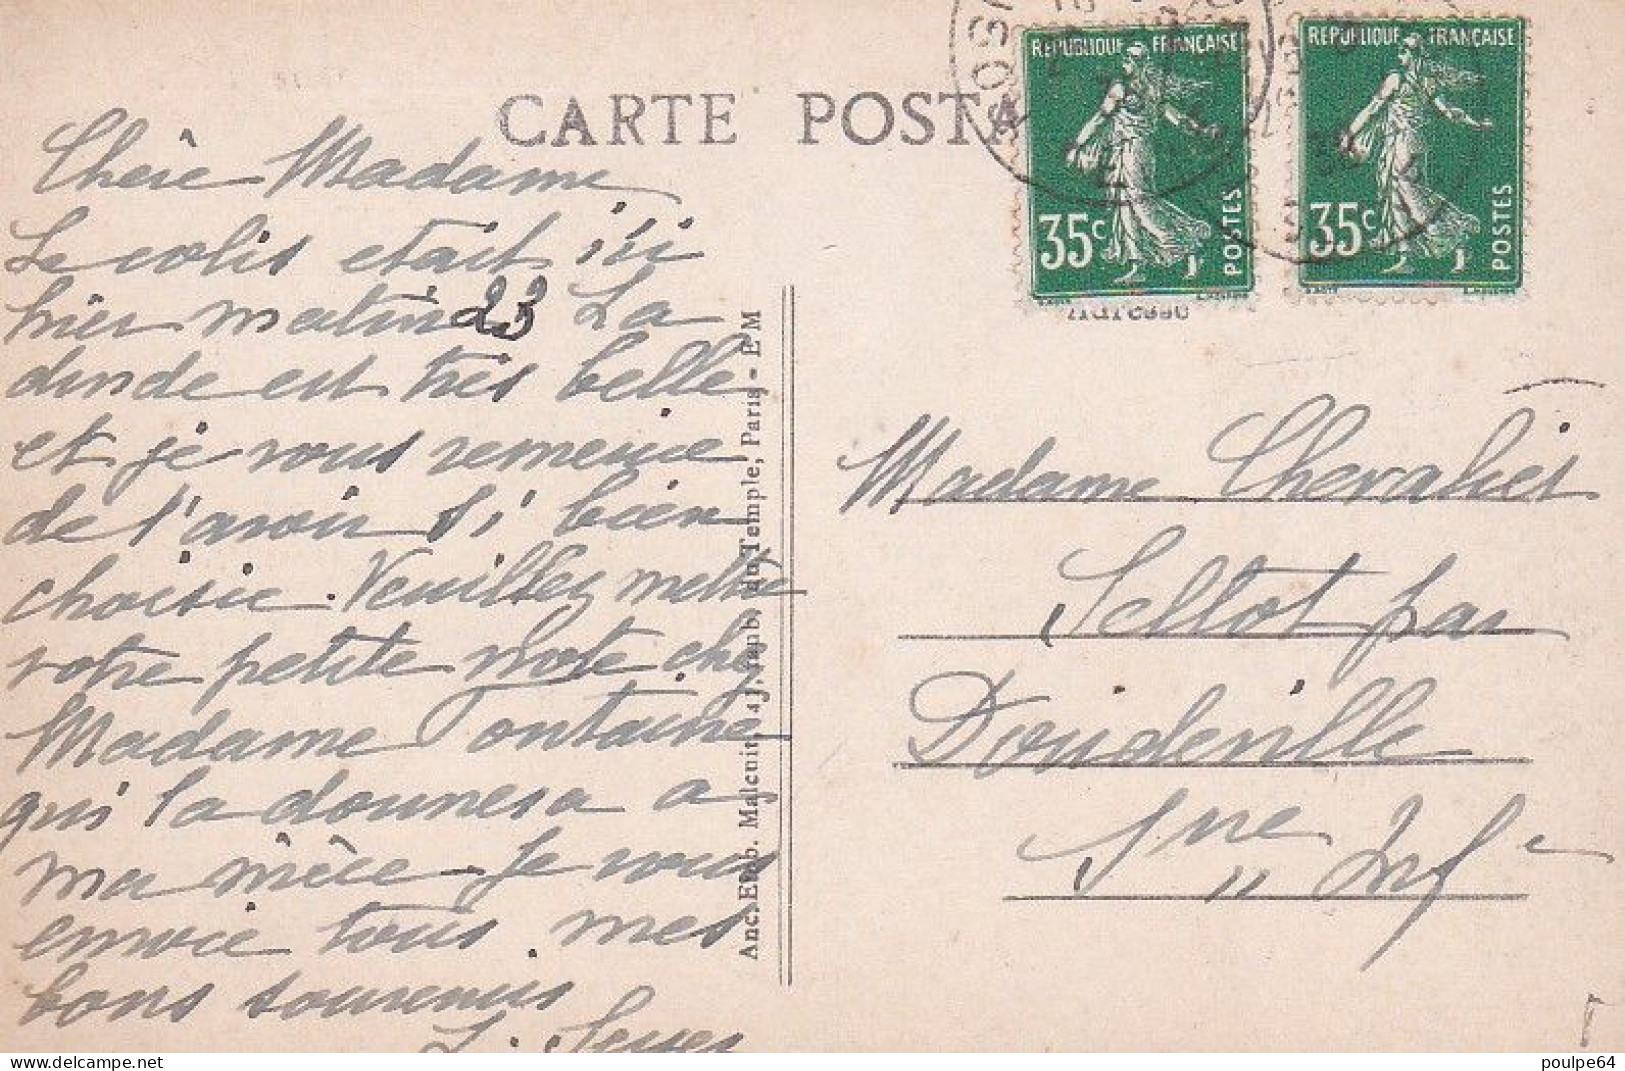 CARTE POSTA
RÉPUBLIQUE FRANÇAISE
35c
POSTES
RÉPUBLIQUE FRANÇAISE
35c
POSTES
Chère Madame
Le colis etait ici
hier matin 23 La
dinde est très belle
et je vous remercie
de l'avoir si bien
choisie. Veuillez mettre
votre petite note chez
Madame Fontaine
qui la donnera a
ma mère. Je vous
envoie tous mes
bons souvenirs
Anc. Etab. Malcuit, 41, Faub. du Temple, Paris - E M
Madame Chevalier
par
Doudeville
Sne " Infre
poulpe64